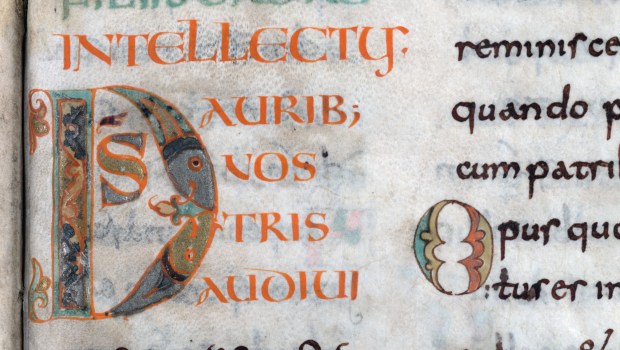 INTELLECTUS
DS AURIB;
NOS
TRIS
AUDIUI
reminisce
quando p
cum patrib
Opus quo
tus es in